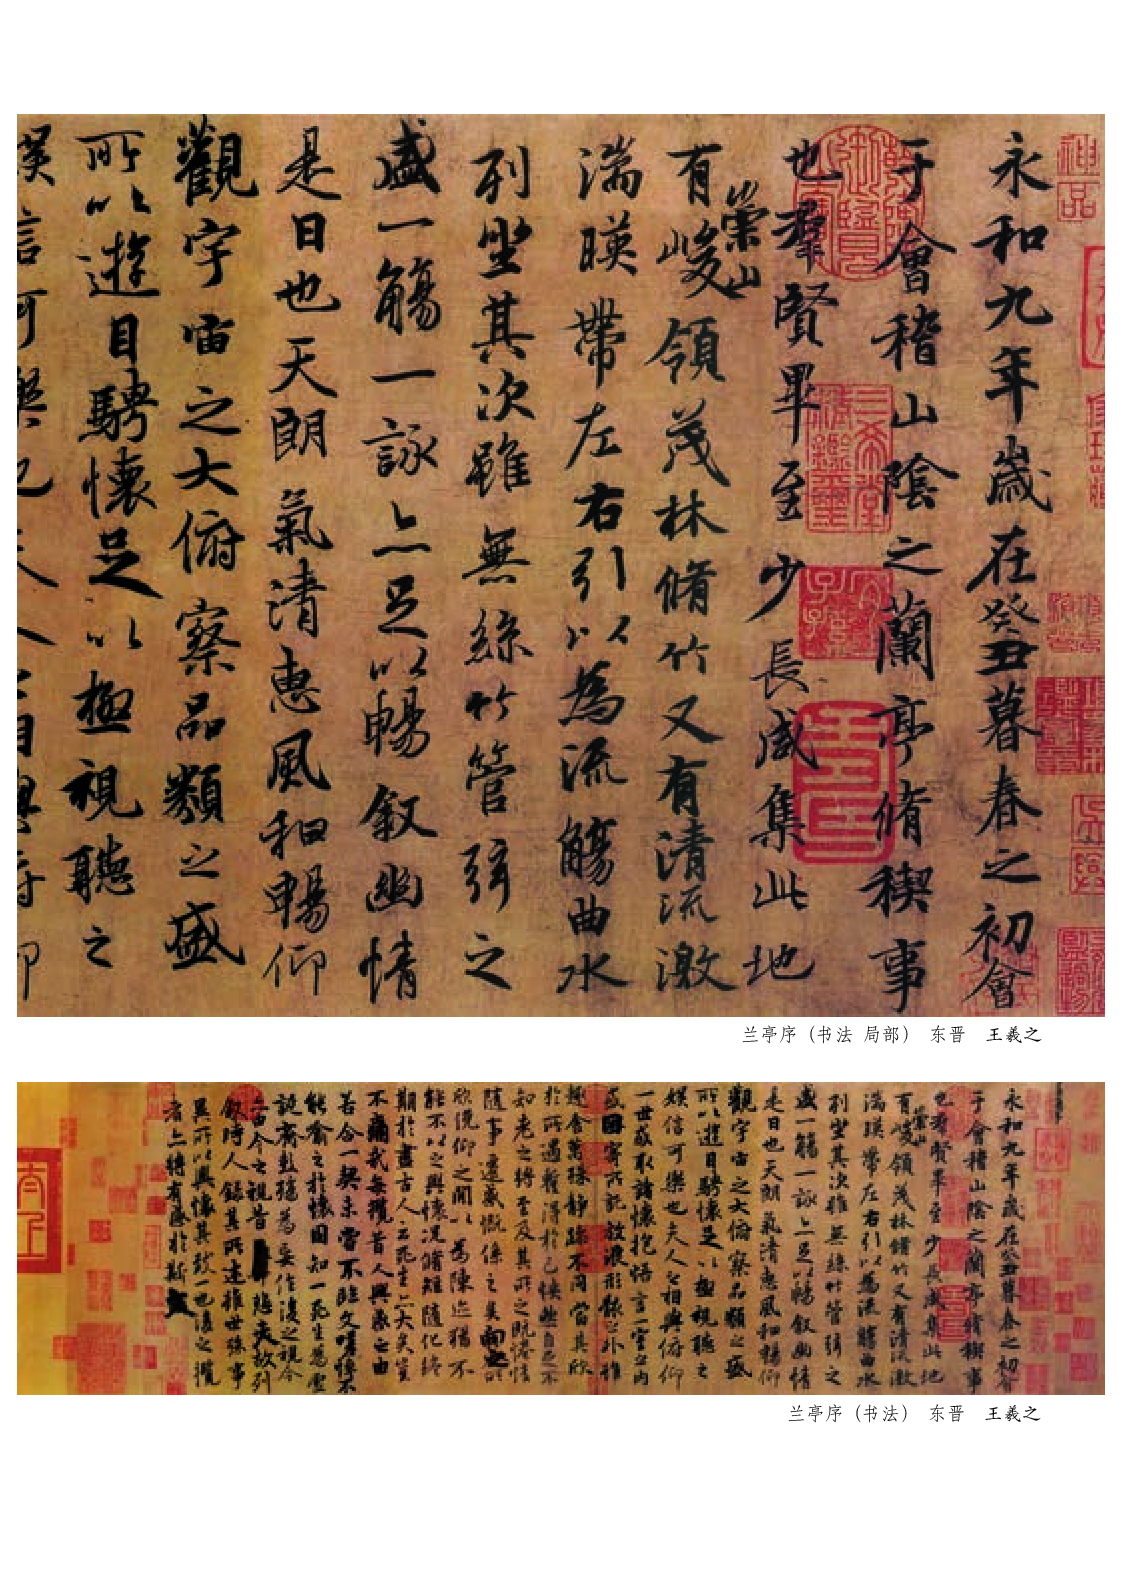 神品
永和九年歲在癸丑暮春之初會
于會稽山陰之蘭亭脩稧事
也羣賢畢至少長咸集此地
崇山
有峻領茂林脩竹又有清流激
湍暎帶左右引以為流觴曲水
列坐其次雖無絲竹管弦之
盛一觴一詠亦足以暢叙幽情
是日也天朗氣清惠風和暢仰
觀宇宙之大俯察品類之盛
所以遊目騁懷足以極視聽之
娛信可樂也夫人之相與俯仰
兰亭序（书法 局部） 东晋 王羲之
永和九年歲在癸丑暮春之初會
于會稽山陰之蘭亭脩稧事
也羣賢畢至少長咸集此地
崇山
有峻領茂林脩竹又有清流激
湍暎帶左右引以為流觴曲水
列坐其次雖無絲竹管弦之
盛一觴一詠亦足以暢叙幽情
是日也天朗氣清惠風和暢仰
觀宇宙之大俯察品類之盛
所以遊目騁懷足以極視聽之
娛信可樂也夫人之相與俯仰
一世或取諸懷抱悟言一室之內
或因寄所託放浪形骸之外雖
趣舍萬殊靜躁不同當其欣
於所遇蹔得於己怏然自足不
知老之將至及其所之既惓情
隨事遷感慨係之矣向之所
欣俛仰之閒以為陳迹猶不
能不以之興懷況脩短隨化終
期於盡古人云死生亦大矣豈
不痛哉每攬昔人興感之由
若合一契未嘗不臨文嗟悼不
能喻之於懷固知一死生為虛
誕齊彭殤為妄作後之視今
亦由今之視昔悲夫故列
叙時人錄其所述雖世殊事
異所以興懷其致一也後之攬
者亦將有感於斯文
兰亭序（书法） 东晋 王羲之